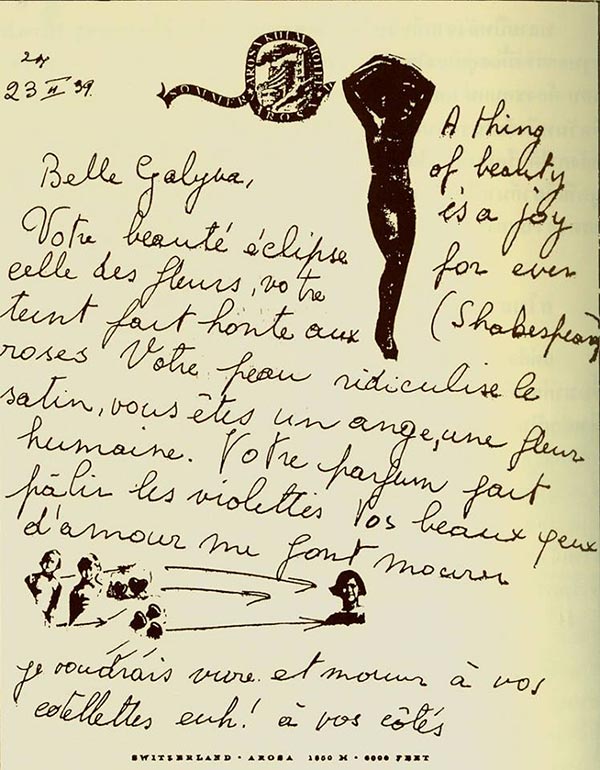 24
23 II 39.
SOMMER AROSA KULM HOTEL AROSA
A thing
of beauty
is a joy
for ever
(Shakespeare)
Belle Galyva,
Votre beauté éclipse
celle des fleurs, votre
teint fait honte aux
roses Votre peau ridiculise le
satin, vous êtes un ange, une fleur
humaine. Votre parfum fait
pâlir les violettes Vos beaux yeux
d'amour me font mourir
je voudrais vivre et mourir à vos
cotellettes euh! à vos côtés
SWITZERLAND · AROSA 1850 M · 6000 FEET